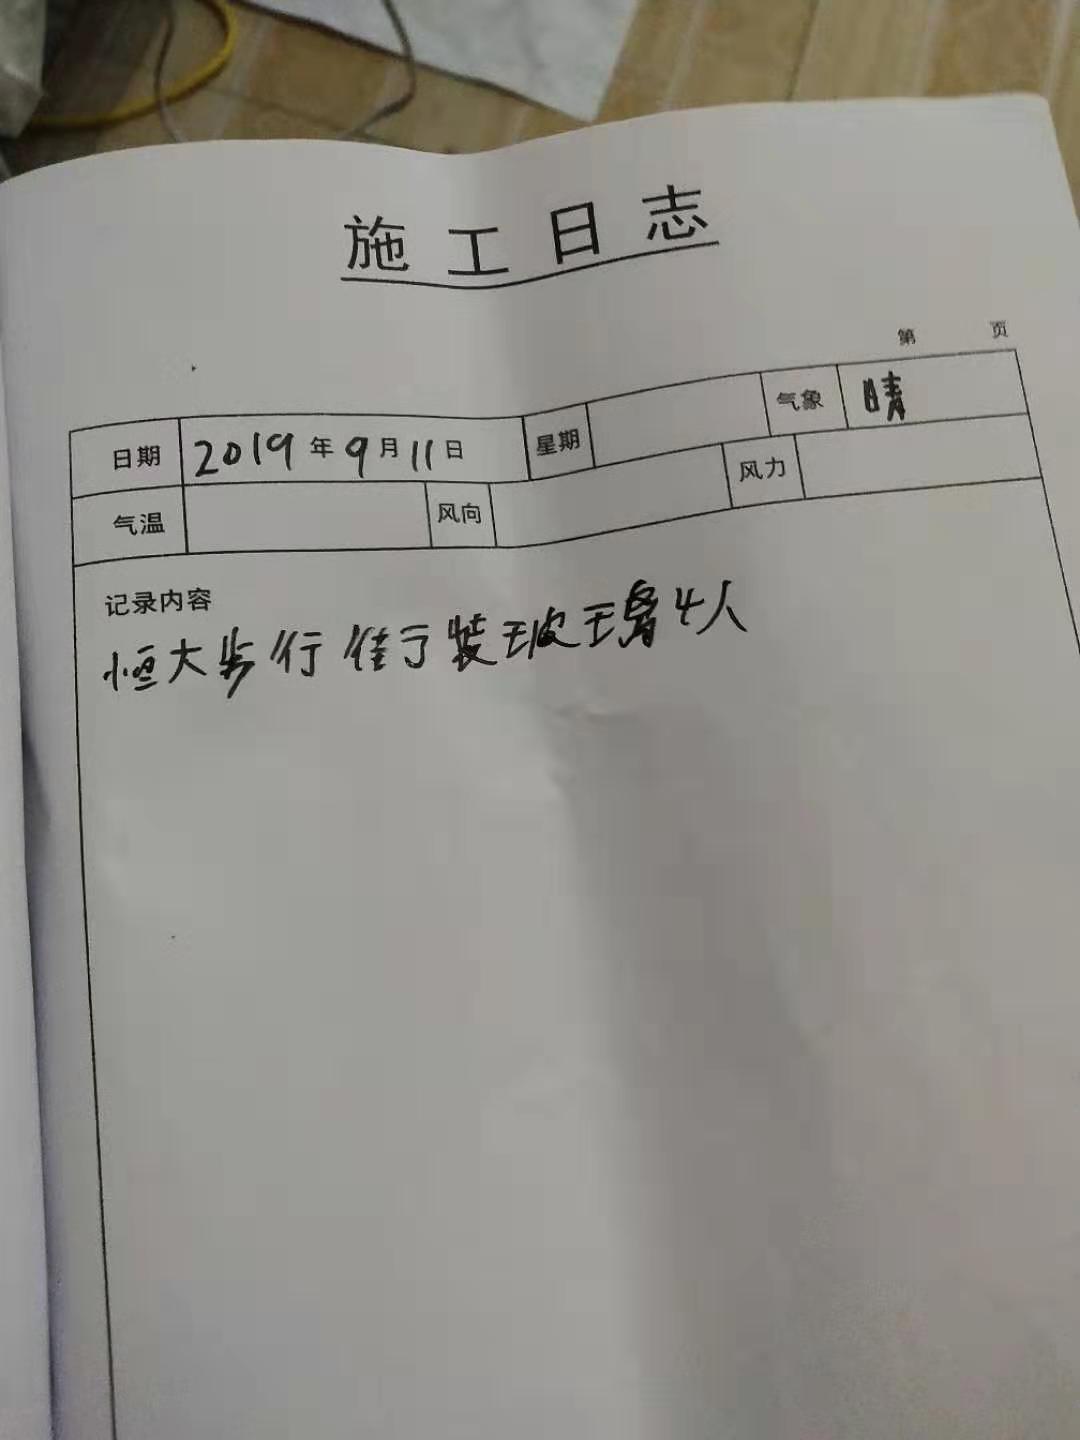 施工日志
第 页
日期 2019年9月11日 星期 气象 晴
气温 风向 风力
记录内容
恒大步行街装玻璃4人